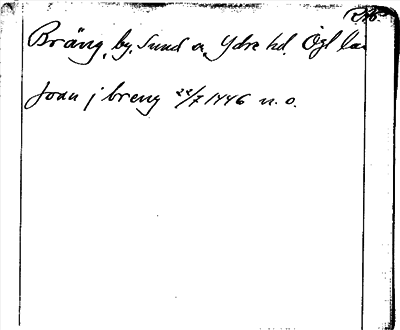 Bräng, by, Sund sn, Ydre hd. Ögl län
Joan j breng 22/7 1446 n. o.